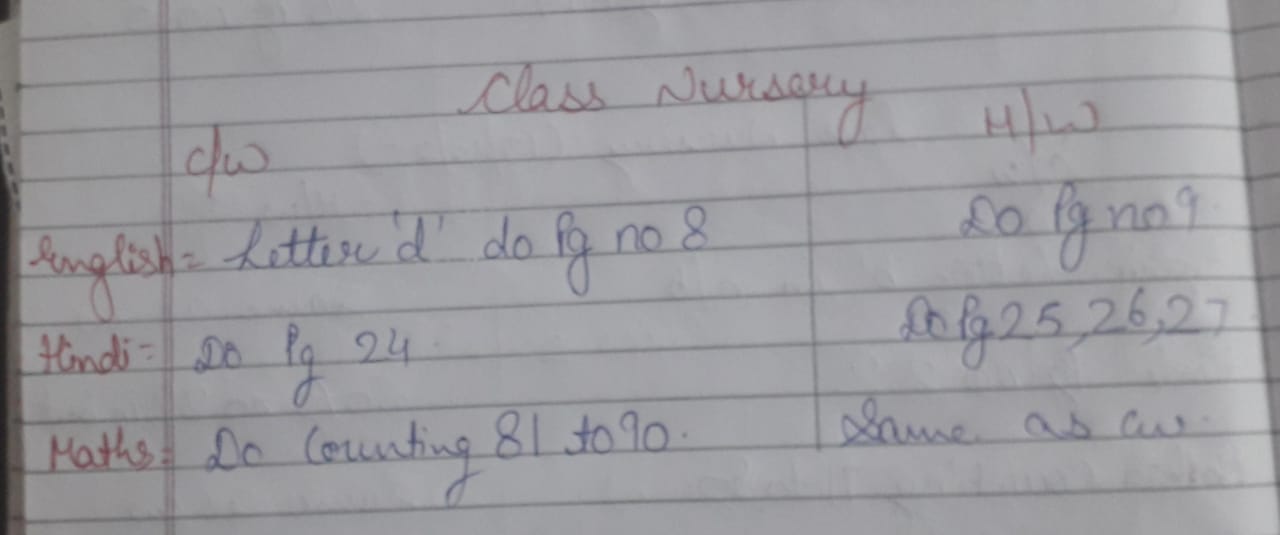 Class Nursery
C/W H/W
English = Letter 'd' do Pg no 8 Do Pg no 9
Hindi = Do Pg 24 Do Pg 25, 26, 27
Maths = Do Counting 81 to 90. Same as cw.